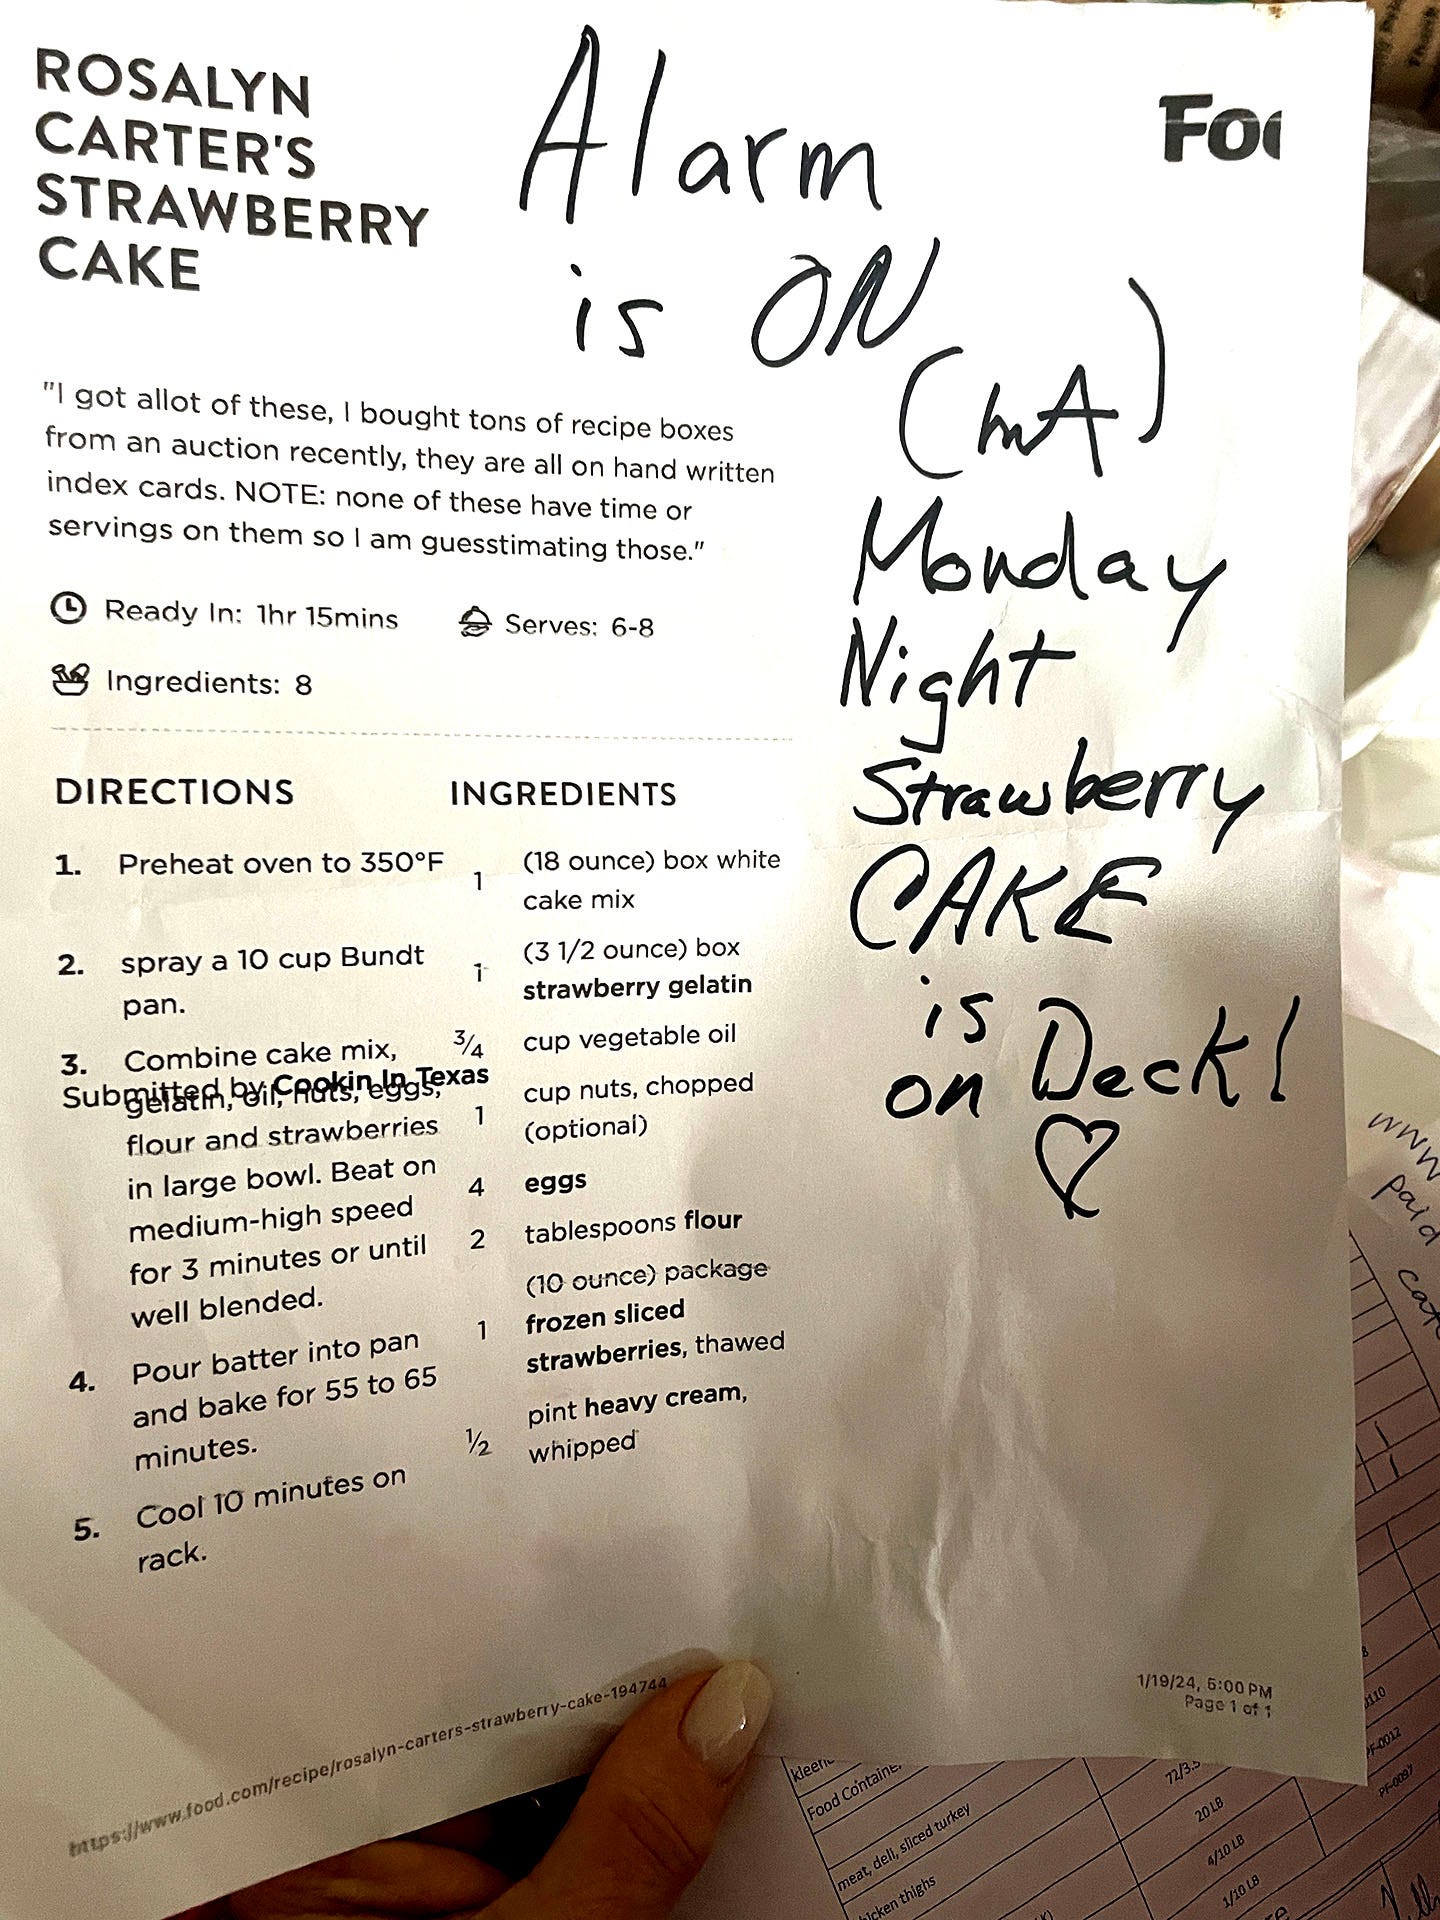 ROSALYN
CARTER'S
STRAWBERRY
CAKE
Alarm
is ON
(mA)
Monday
Night
Strawberry
CAKE
is
on Deck!
"I got allot of these, I bought tons of recipe boxes
from an auction recently, they are all on hand written
index cards. NOTE: none of these have time or
servings on them so I am guesstimating those."
Ready In: 1hr 15mins
Serves: 6-8
Ingredients: 8
DIRECTIONS
1. Preheat oven to 350°F
2. spray a 10 cup Bundt
pan.
3. Combine cake mix,
gelatin, oil, nuts, eggs,
flour and strawberries
in large bowl. Beat on
medium-high speed
for 3 minutes or until
well blended.
4. Pour batter into pan
and bake for 55 to 65
minutes.
5. Cool 10 minutes on
rack.
Submitted by Cookin In Texas
INGREDIENTS
1 (18 ounce) box white
cake mix
1 (3 1/2 ounce) box
strawberry gelatin
3/4 cup vegetable oil
1 cup nuts, chopped
(optional)
4 eggs
2 tablespoons flour
1 (10 ounce) package
frozen sliced
strawberries, thawed
1/2 pint heavy cream,
whipped
https://www.food.com/recipe/rosalyn-carters-strawberry-cake-194744
1/19/24, 5:00 PM
Page 1 of 1
paid
Food Container
72/3.5
PF-0012
meat, deli, sliced turkey
20 LB
PF-0097
thighs
4/10 LB
1/10 LB